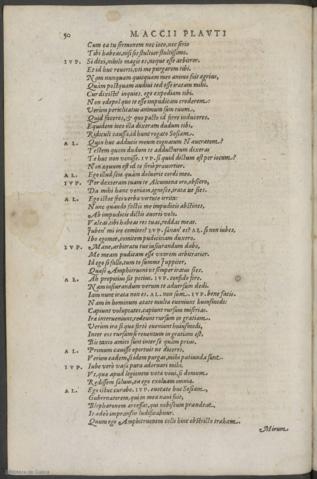 50 M. ACCII PLAVTI
Cum ea tu sermonem nec ioco, nec serio
Tibi habeas, nisi sis stultior stultissimo.
IVP. Si dixi, nihilo magis es, neque esse arbitror.
Et id huc reuerti, uti me purgarem tibi.
Nam nunquam quicquam meo animo fuit ægrius,
Quàm postquam audiui ted esse iratam mihi.
Cur dixisti? inquies. ego expediam tibi.
Non edepol quo te esse impudicam crederem:
Verùm periclitatus animum sum tuum,
Quid faceres, & quo pacto id ferre induceres.
Equidem ioco illa dixeram dudum tibi,
Ridiculi causa, id hunc rogato Sosiam.
AL. Quin huc adducis meum cognatum Naucratem?
Testem quem dudum te adducturum dixeras
Te huc non uenisse. IVP. si quid dictum est per iocum?
Non æquum est id te seriò prævortier.
AL. Ego illud scio quàm doluerit cordi meo.
IVP. Per dexteram tuam te Alcumena oro, obsecro,
Da mihi hanc ueniam, ignosce, irata ne sies.
AL. Ego istæc feci uerba uirtute irrita:
Nunc quando factis me impudicis abstines,
Ab impudicis dictis auorti uolo.
Valeas, tibi habeas res tuas, reddas meas.
Iuben' mi ire comites? IVP. sanan' es? AL. si non iubes,
Ibo egomet, comitem pudicitiam duxero.
IVP. Mane, arbitratu tuo iusiurandum dabo,
Me meam pudicam esse uxorem arbitrarier.
Id ego si fallo, tum te summe Iuppiter,
Quæso Amphitruoni ut semper iratus sies.
AL. Ah propitius sit potius. IVP. confido fore,
Nam iusiurandum uerum te aduersum dedi.
Iam nunc irata non es. AL. non sum. IVP. bene facis.
Nam in hominum ætate multa eueniunt huiusmodi:
Capiunt uoluptates, capiunt rursum miserias.
Iræ interueniunt, redeunt rursum in gratiam.
Verùm iræ si quæ fortè eueniunt huiusmodi,
Inter eos rursum si reuentum in gratiam est,
Bis tanto amici sunt inter se quàm prius.
AL. Primum cauisse oportuit ne diceres,
Verùm eadem, si idem purgas, mihi patiunda sunt.
IVP. Iube uerò uasa pura adornari mihi,
Vt, quæ apud legionem uota uoui, si domum
Redissem saluus, ea ego exsoluam omnia.
AL. Ego istuc curabo. IVP. euocate huc Sosiam.
Gubernatorem, qui in mea naui fuit,
Blepharonem arcessat, qui nobiscum prandeat.
Is adeò impransus ludificabitur:
Quum ego Amphitruonem collo hinc obstricto traham.
Mirum